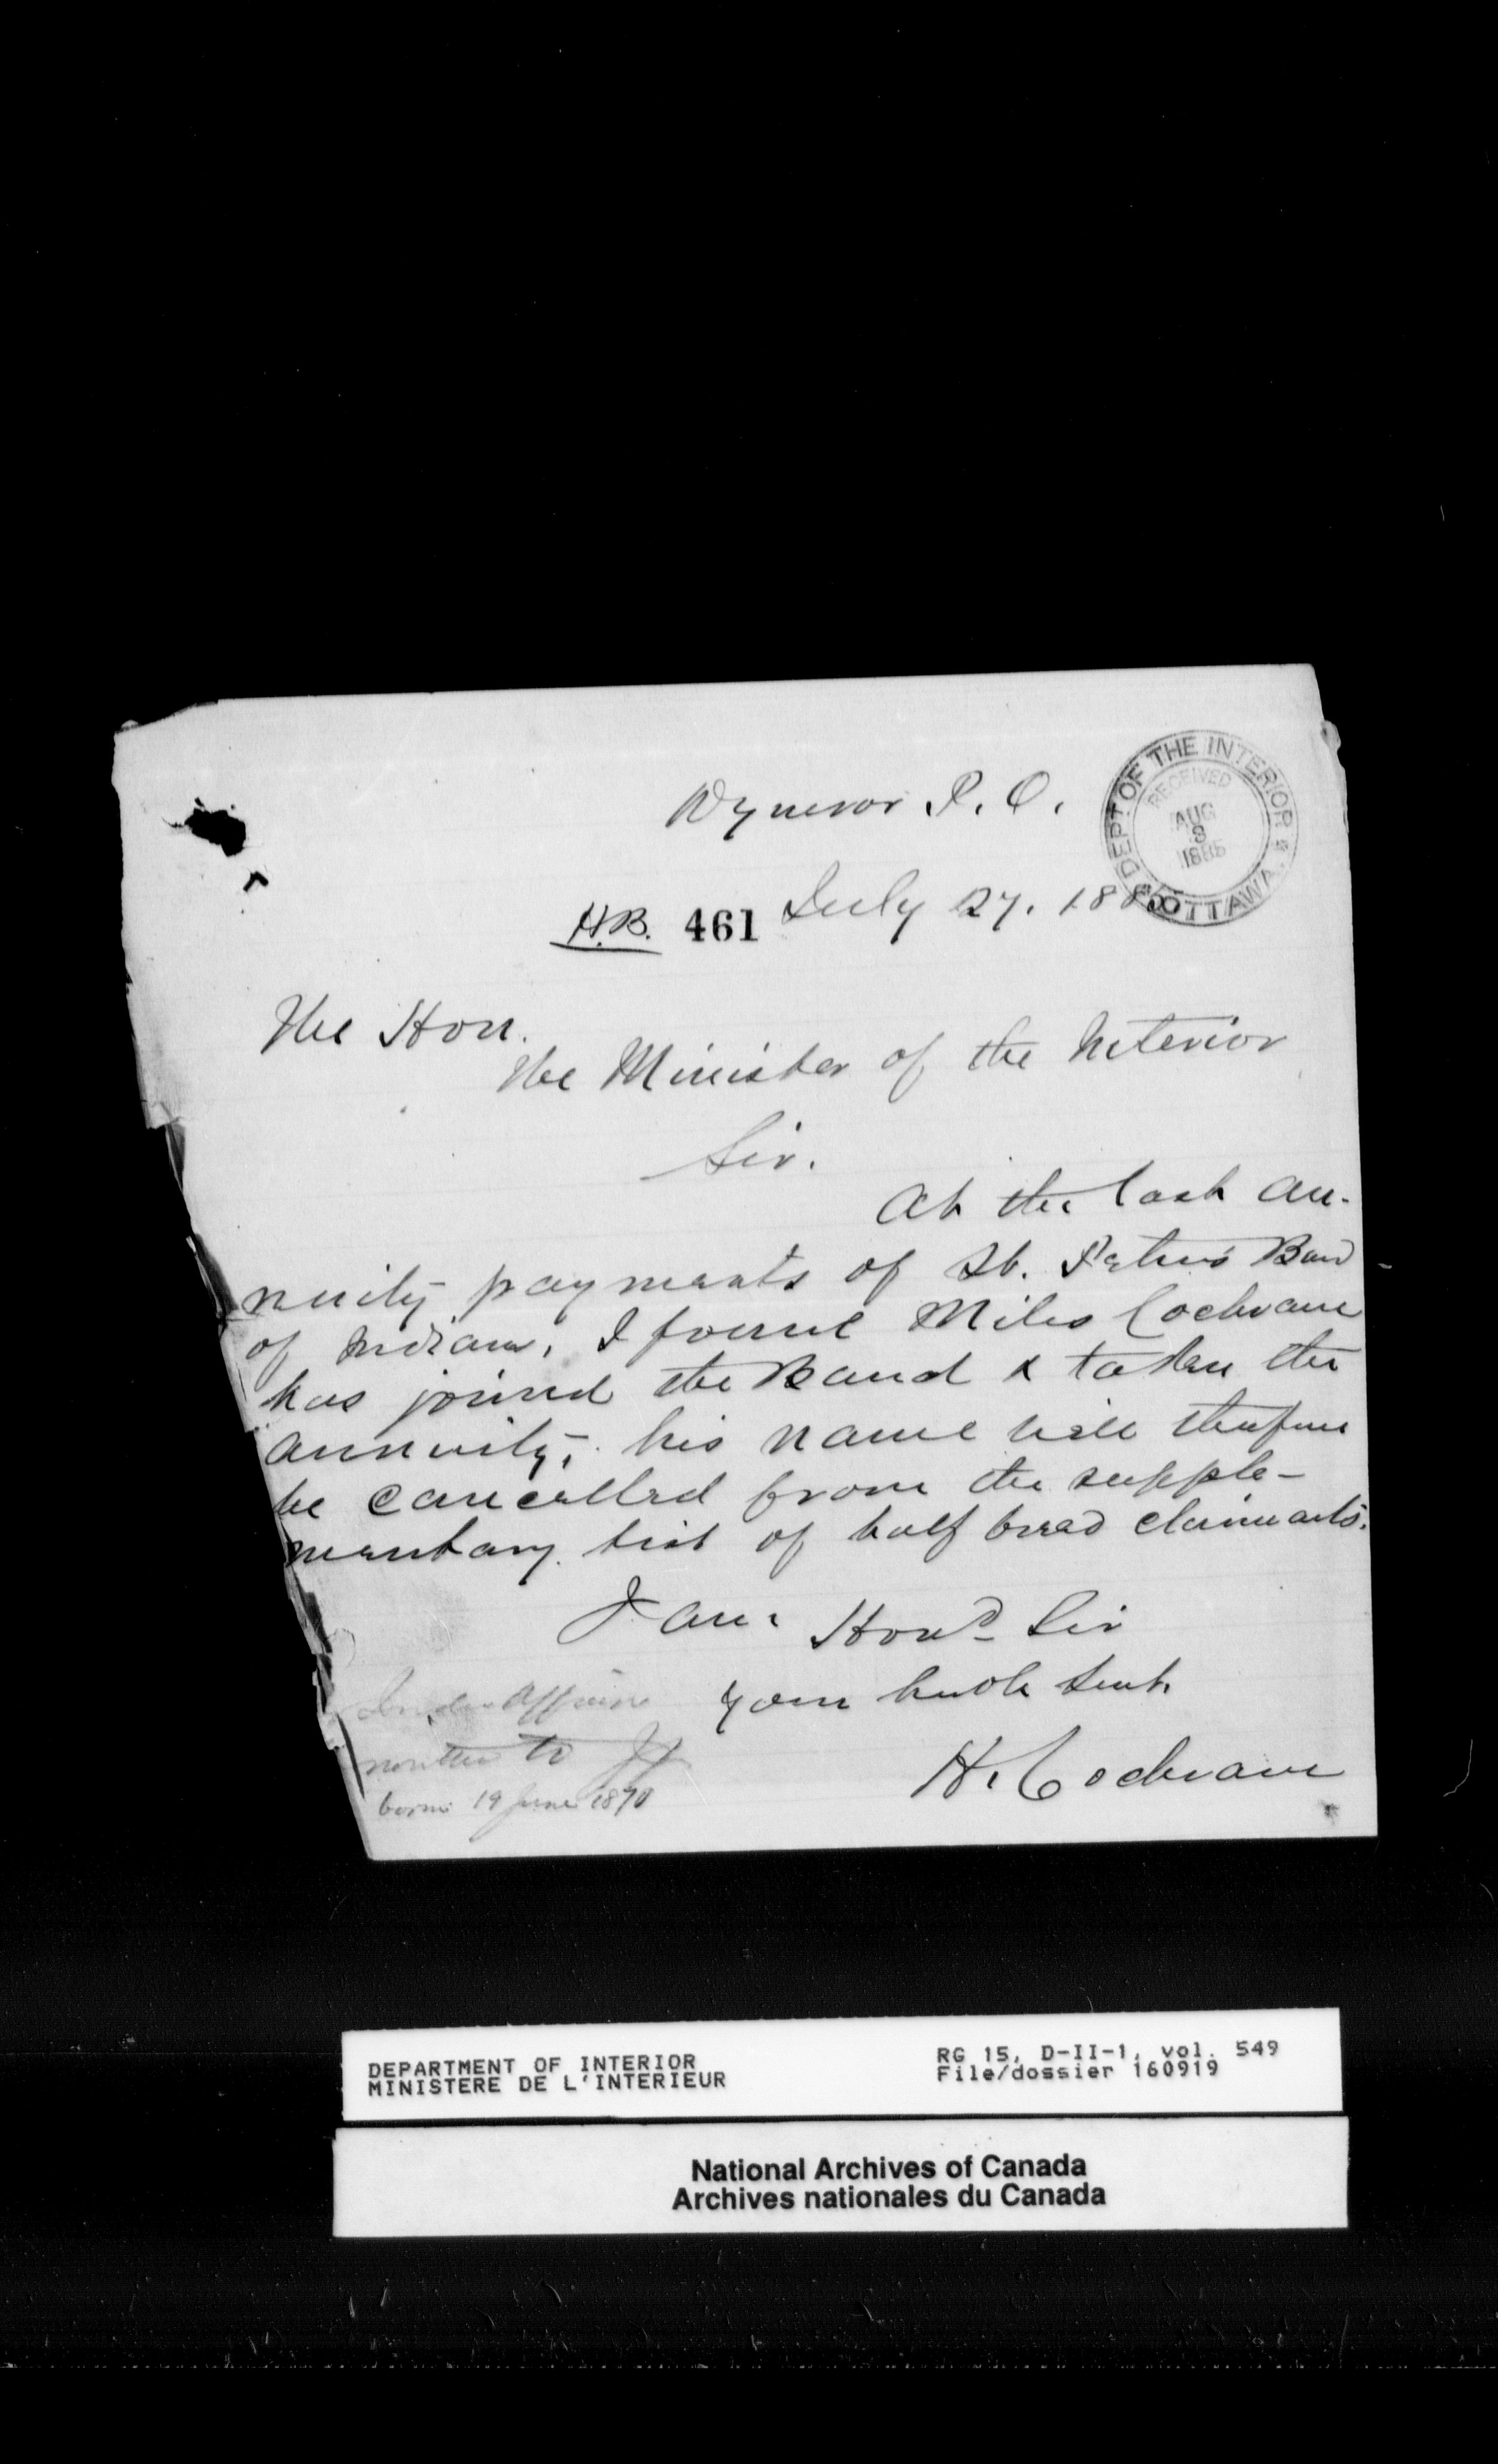 Dynevor P. O.
DEPT OF THE INTERIOR
RECEIVED
AUG
3
1885
OTTAWA
July 27. 1885
H.B. 461
The Hon.
The Minister of the Interior
Sir.
At the last an-
nuity payments of St. Peter's Band
of Indians, I found Miles Cochrane
has joined the Band & taken the
annuity, his name will therefore
be cancelled from the supple-
mentary list of half breed claimants.
I am. Hond Sir
your huble Servt.
H. Cochrane
Indian Affairs
written to
born 19 June 1870
DEPARTMENT OF INTERIOR
MINISTERE DE L'INTERIEUR
RG 15, D-II-1, vol. 549
File/dossier 160919
National Archives of Canada
Archives nationales du Canada